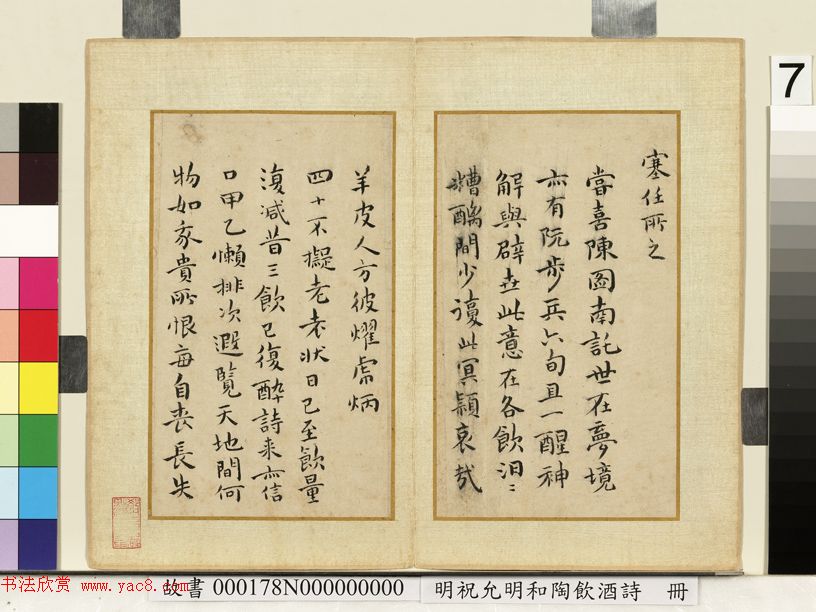 塞任所之
嘗喜陳圖南託世在夢境
亦有阮步兵六旬且一醒神
解與辟此意在各飲汩〻
糟醨間少此冥穎哀哉
羊皮人方彼燿虎炳
四十不擬老老狀日已至飲量
復减昔三飲已復酔詩来亦信
口甲乙懶排次遐覽天地間何
物如家貴所恨每自丧長失
7
故書 000178N000000000
明祝允明和陶飲酒詩 冊
书法欣赏 www.yac8.com